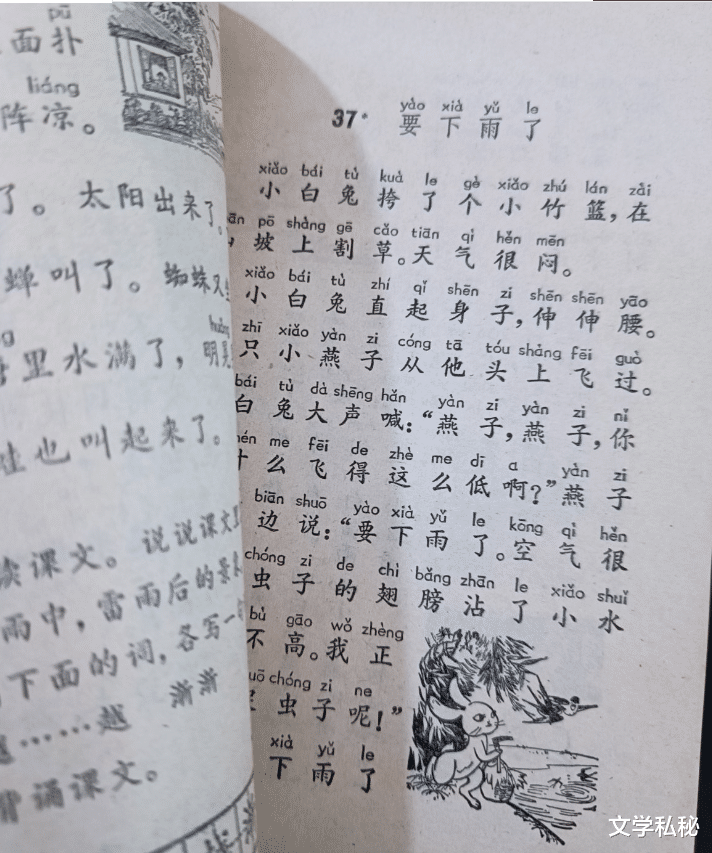 pū
面扑
liáng
阵凉。
了。太阳出来了。
蝉叫了。蜘蛛又
里水满了，
也叫起来了。
读课文。说说课文
雨中，雷雨后的景
下面的词，各写一
……越 渐渐
背诵课文。
yào xià yǔ le
37 要下雨了
xiǎo bái tù kuà le gè xiǎo zhú lán zài
小白兔挎了个小竹篮，在
pō shàng gē cǎo tiān qì hěn mēn
坡上割草。天气很闷。
xiǎo bái tù zhí qǐ shēn zi shēn shēn yāo
小白兔直起身子，伸伸腰。
zhī xiǎo yàn zi cóng tā tóu shàng fēi guò
只小燕子从他头上飞过。
bái tù dà shēng hǎn yàn zi yàn zi nǐ
白兔大声喊：“燕子，燕子，你
me fēi de zhè me dī a yàn zi
什么飞得这么低啊？”燕子
biān shuō yào xià yǔ le kōng qì hěn
边说：“要下雨了。空气很
chóng zi de chì bǎng zhān le xiǎo shuǐ
虫子的翅膀沾了小水
bù gāo wǒ zhèng
不高。我正
chóng zi ne
虫子呢！”
xià yǔ le
下雨了
文学私秘